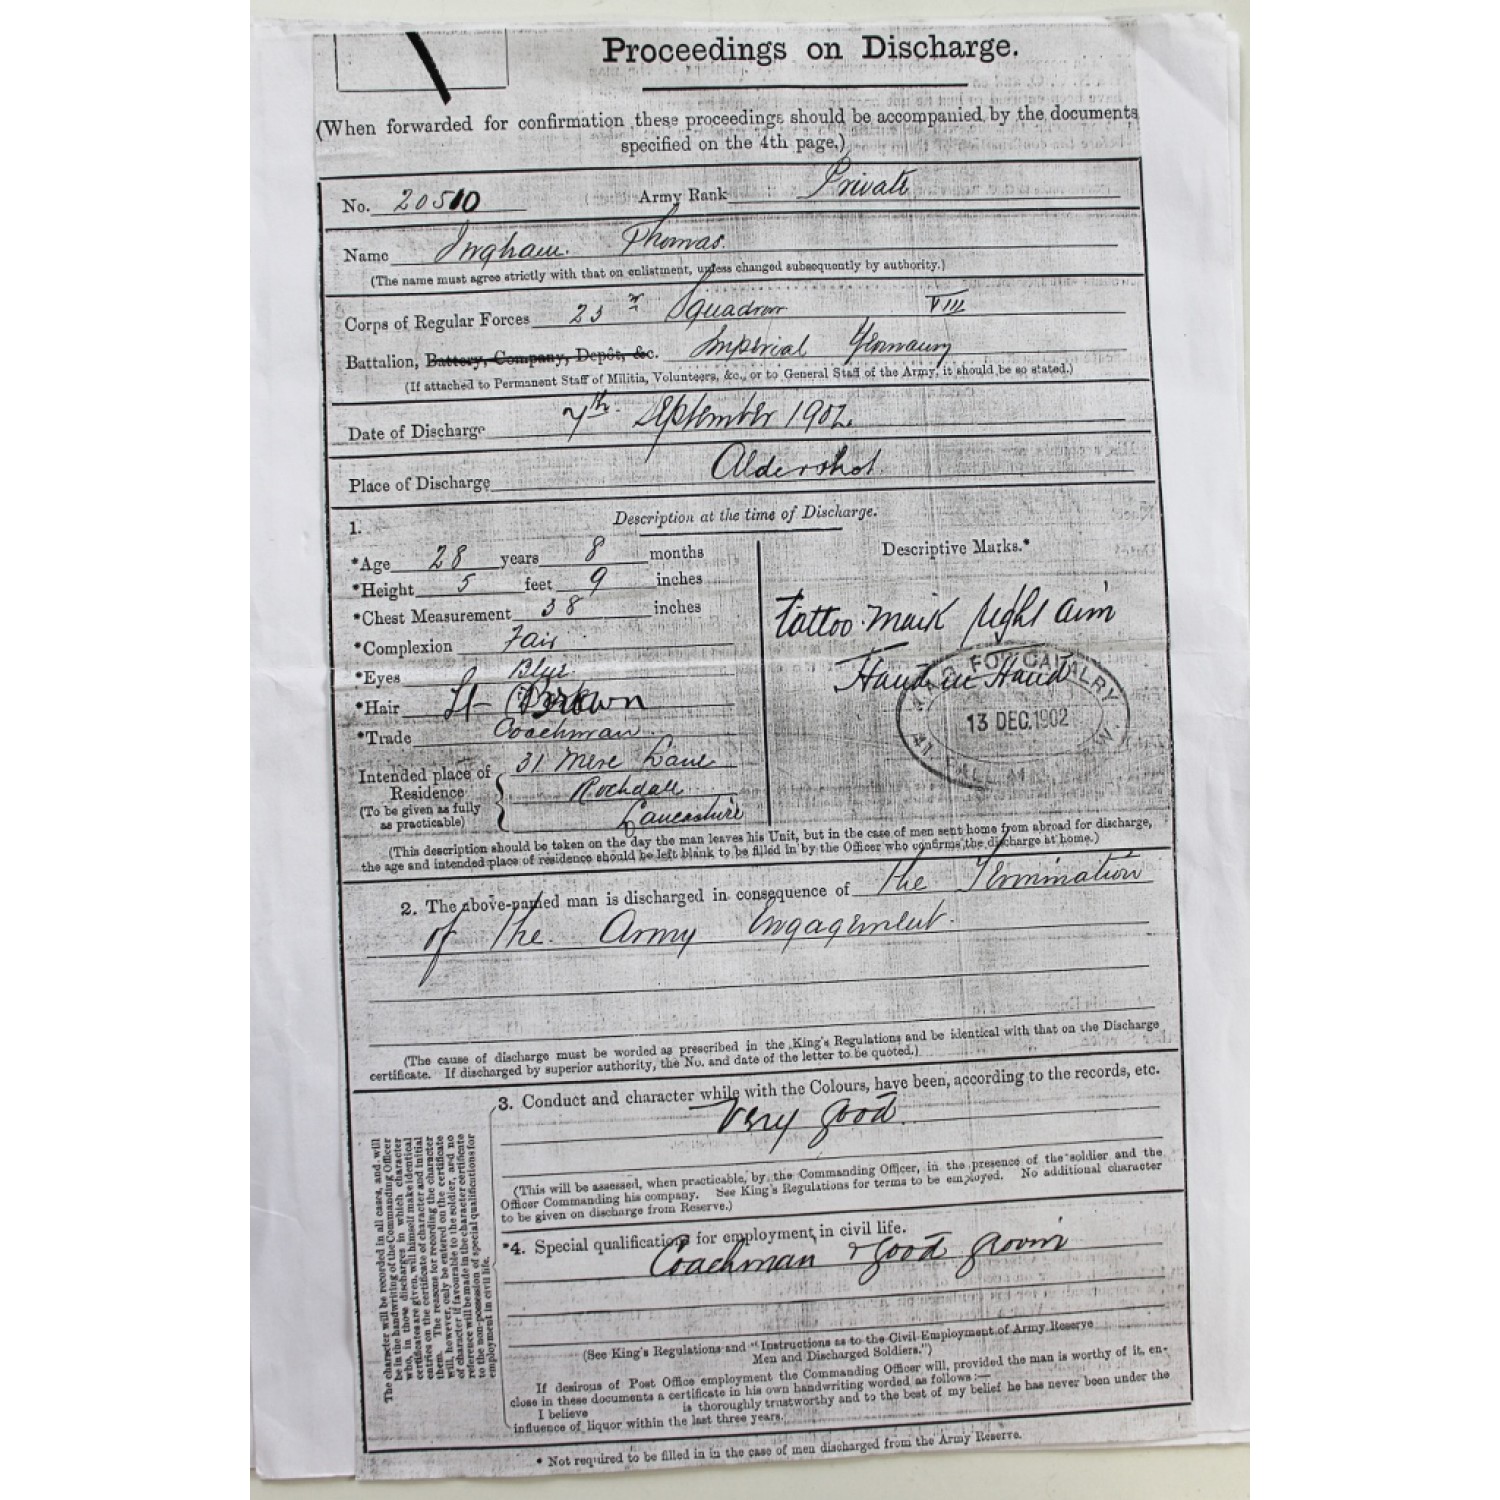 Proceedings on Discharge.
(When forwarded for confirmation these proceedings should be accompanied by the documents
specified on the 4th page.)
No. 20510 Army Rank Private
Name Ingham. Thomas.
(The name must agree strictly with that on enlistment, unless changed subsequently by authority.)
Corps of Regular Forces 23 Squadron VIII
Battalion, Battery, Company, Depôt, &c. Imperial Yeomanry
(If attached to Permanent Staff of Militia, Volunteers, &c., or to General Staff of the Army, it should be so stated.)
Date of Discharge 7th. September 1902.
Place of Discharge Aldershot.
1. Description at the time of Discharge.
*Age 28 years 8 months
*Height 5 feet 9 inches
*Chest Measurement 38 inches
*Complexion Fair
*Eyes Blue.
*Hair Lt Brown
*Trade Coachman.
Intended place of
Residence
(To be given as fully
as practicable)
31 Mere Lane
Rochdale
Lancashire
Descriptive Marks.*
tattoo mark right arm
Hand in Hand
FOR CAVALRY
13 DEC. 1902
PALL MALL
(This description should be taken on the day the man leaves his Unit, but in the case of men sent home from abroad for discharge,
the age and intended place of residence should be left blank to be filled in by the Officer who confirms the discharge at home.)
2. The above-named man is discharged in consequence of the Termination
of the Army Engagement.
(The cause of discharge must be worded as prescribed in the King's Regulations and be identical with that on the Discharge
certificate. If discharged by superior authority, the No. and date of the letter to be quoted.)
3. Conduct and character while with the Colours, have been, according to the records, etc.
Very good.
(This will be assessed, when practicable, by the Commanding Officer, in the presence of the soldier and the
Officer Commanding his company. See King's Regulations for terms to be employed. No additional character
to be given on discharge from Reserve.)
*4. Special qualifications for employment in civil life.
Coachman & good groom
(See King's Regulations and "Instructions as to the Civil Employment of Army Reserve
Men and Discharged Soldiers.")
If desirous of Post Office employment the Commanding Officer will, provided the man is worthy of it, en-
close in these documents a certificate in his own handwriting worded as follows:—
I believe is thoroughly trustworthy and to the best of my belief he has never been under the
influence of liquor within the last three years.
The character will be recorded in all cases, and will
be in the handwriting of the Commanding Officer
who, in those discharges in which character
certificates are given, will himself make identical
entries on the certificate of character and initial
them. The reasons for recording the character
will, however, only be entered on the certificate
of character if favourable to the soldier, and no
reference will be made in the character certificate
to the non-possession of special qualifications for
employment in civil life.
* Not required to be filled in in the case of men discharged from the Army Reserve.